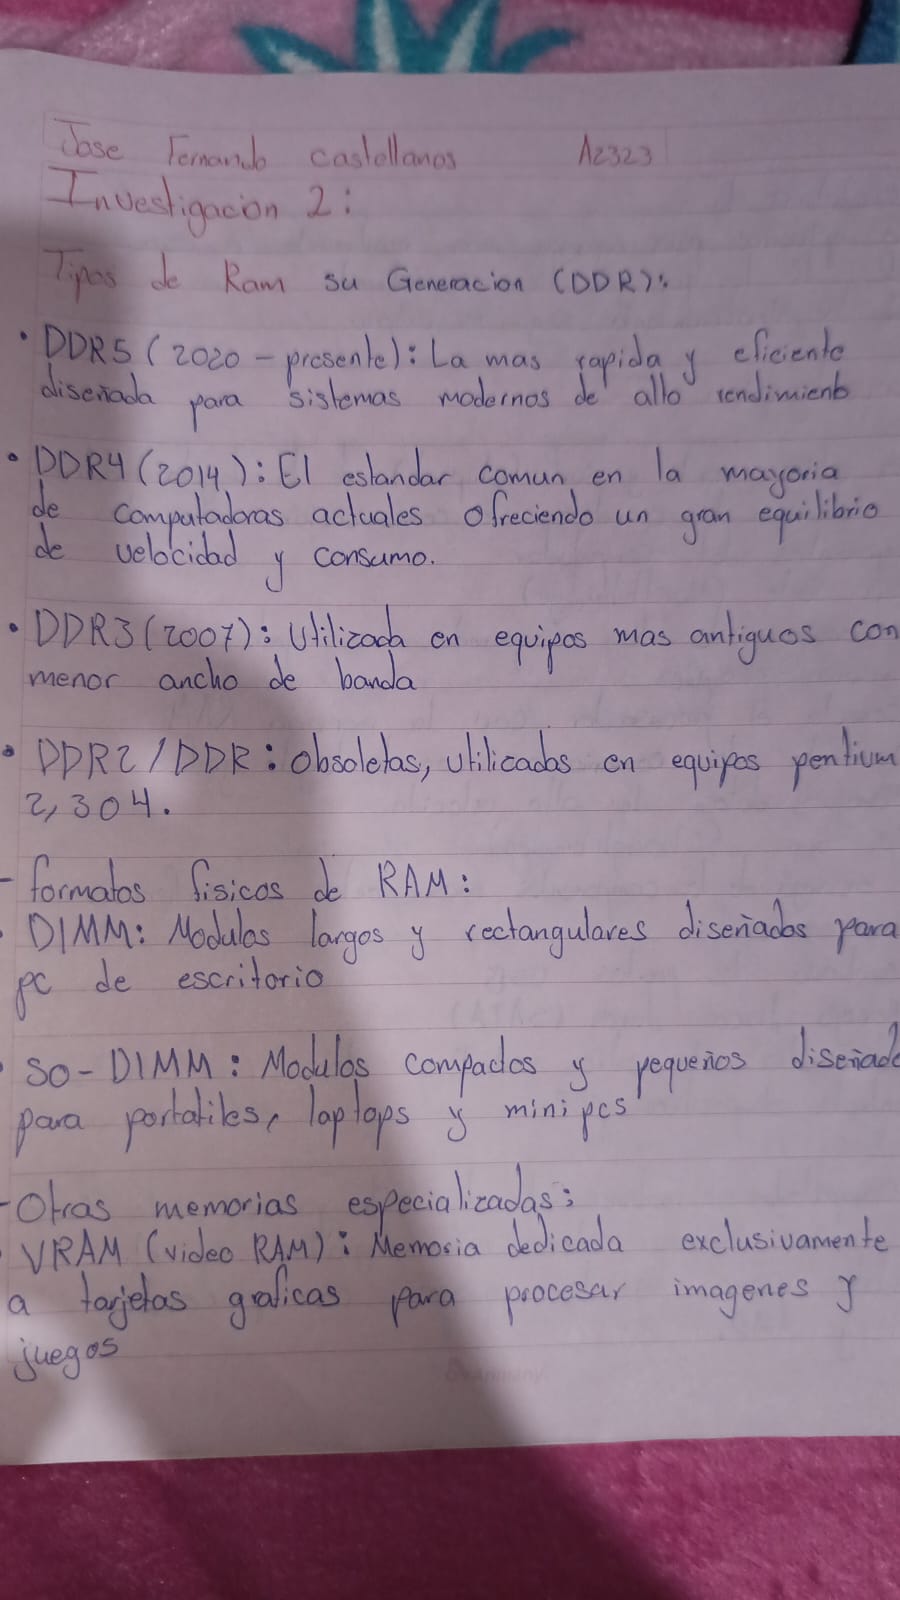 Jose Fernando Castellanos A2323
Investigacion 2:
Tipos de Ram su Generacion (DDR):
• DDR5 (2020 - presente): La mas rapida y eficiente
diseñada para sistemas modernos de alto rendimiento
• DDR4 (2014): El estandar comun en la mayoria
de computadoras actuales ofreciendo un gran equilibrio
de velocidad y consumo.
• DDR3 (2007): Utilizada en equipos mas antiguos con
menor ancho de banda
• DDR2/DDR: Obsoletas, utilicadas en equipos pentium
2, 3 o 4.
- formatos fisicos de RAM:
• DIMM: Modulos largos y rectangulares diseñados para
pc de escritorio
• SO-DIMM: Modulos compactos y pequeños diseñad
para portatiles, laptops y mini pcs
- Otras memorias especializadas:
• VRAM (video RAM): Memoria dedicada exclusivamente
a tarjetas graficas para procesar imagenes y
juegos